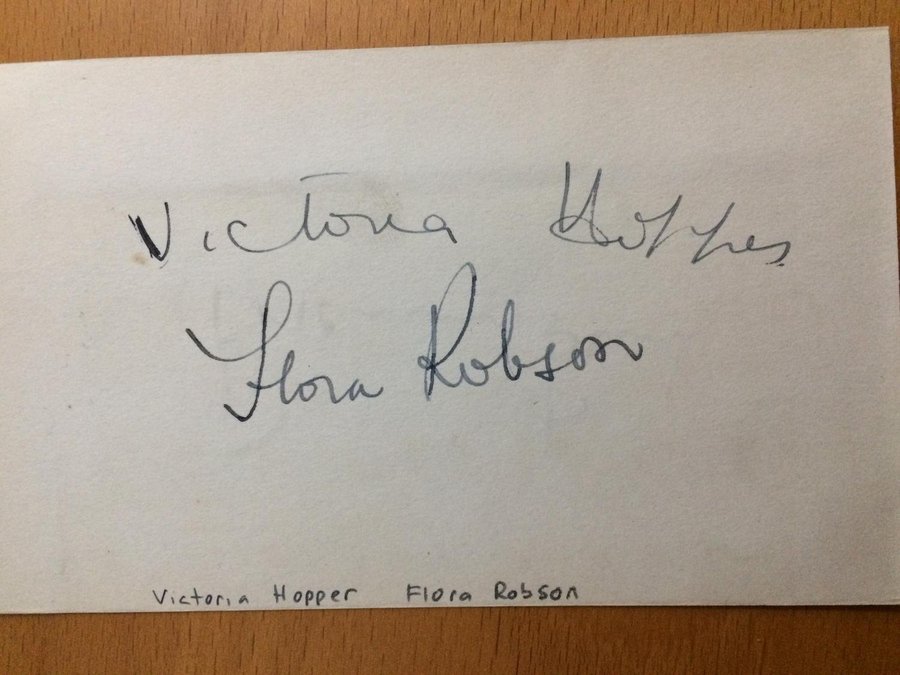 Victoria Hopper
Flora Robson
Victoria Hopper Flora Robson